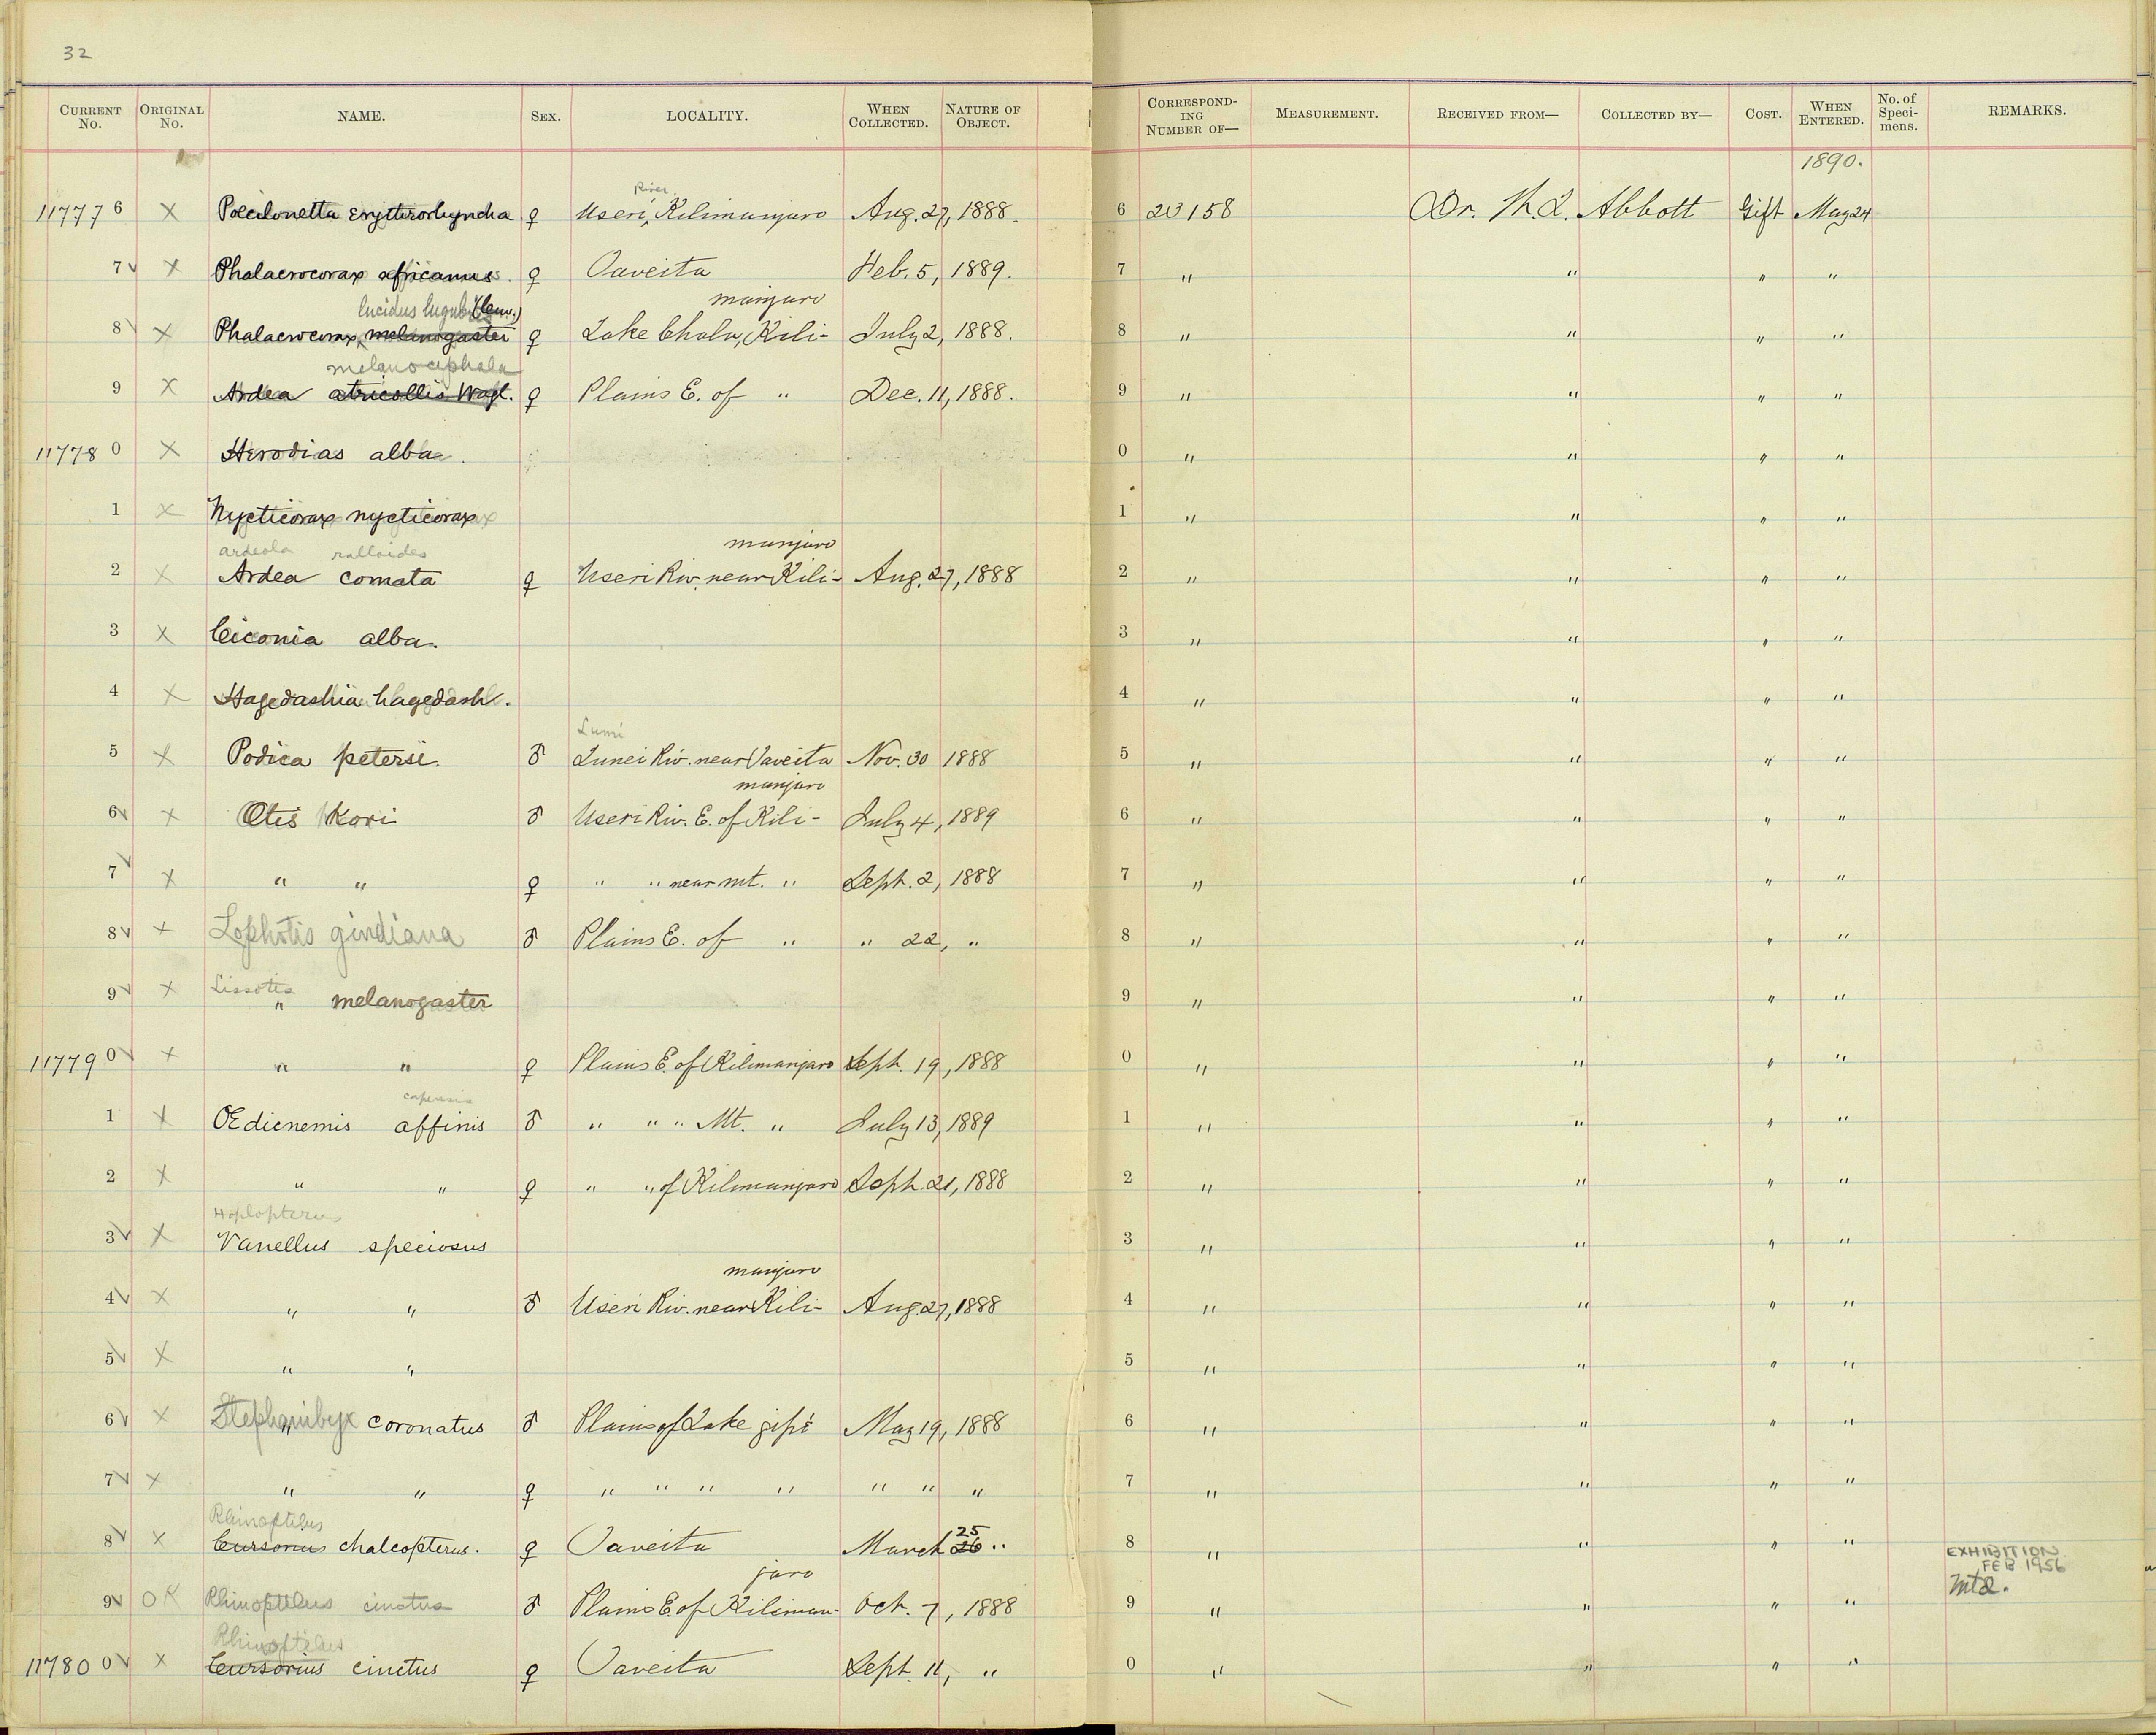 32
CURRENT No. ORIGINAL No. NAME. SEX. LOCALITY. WHEN COLLECTED. NATURE OF OBJECT. CORRESPONDING NUMBER OF— MEASUREMENT. RECEIVED FROM— COLLECTED BY— COST. WHEN ENTERED. No. of Specimens. REMARKS.
1890.
River
11777 6 X Poecilonetta erythrorhyncha ♀ Useri, Kilimanjaro Aug. 27, 1888. 6 23158 Dr. W. L. Abbott Gift May 24
7 X Phalacrocorax africanus. ♀ Taveita Feb. 5, 1889. 7 " " " "
lucidus lugubris manjaro
8 X Phalacrocorax melanogaster ♀ Lake Chala, Kili- July 2, 1888. 8 " " " "
melanocephala
9 X Ardea atricollis Wagl. ♀ Plains E. of " Dec. 11, 1888. 9 " " " "
11778 0 X Herodias alba. 0 " " " "
1 X Nycticorax nycticorax 1 " " " "
ardeola ralloides manjaro
2 X Ardea comata ♀ Useri Riv. near Kili- Aug. 27, 1888 2 " " " "
3 X Ciconia alba. 3 " " " "
4 X Hagedashia hagedash. 4 " " " "
Lumi
5 X Podica petersi. ♂ Lunei Riv. near Taveita Nov. 30 1888 5 " " " "
manjaro
6 X Otis Kori ♂ Useri Riv. E. of Kili- July 4, 1889 6 " " " "
7 X " " ♀ " " near mt. " Sept. 2, 1888 7 " " " "
8 X Lophotis gindiana ♂ Plains E. of " " 22, " 8 " " " "
Lissotis
9 X " melanogaster 9 " " " "
11779 0 X " " ♀ Plains E. of Kilimanjaro Sept. 19, 1888 0 " " " "
capensis
1 X Œdicnemis affinis ♂ " " " Mt. " July 13, 1889 1 " " " "
2 X " " ♀ " " of Kilimanjaro Sept. 21, 1888 2 " " " "
Hoplopterus
3 X Vanellus speciosus 3 " " " "
manjaro
4 X " " ♂ Useri Riv. near Kili- Aug. 27, 1888 4 " " " "
5 X " " 5 " " " "
6 X Stephanibyx " coronatus ♂ Plains of Lake jipi May 19, 1888 6 " " " "
7 X " " ♀ " " " " " " " 7 " " " "
Rhinoptilus 25
8 X Cursorius chalcopterus. ♀ Taveita March 26 " 8 " " " "
jaro EXHIBITION
FEB 1956
9 OK Rhinoptilus cinctus ♂ Plains E. of Kiliman- Oct. 7, 1888 9 " " " " Mtd.
Rhinoptilus
11780 0 X Cursorius cinctus ♀ Taveita Sept. 11, " 0 " " " "